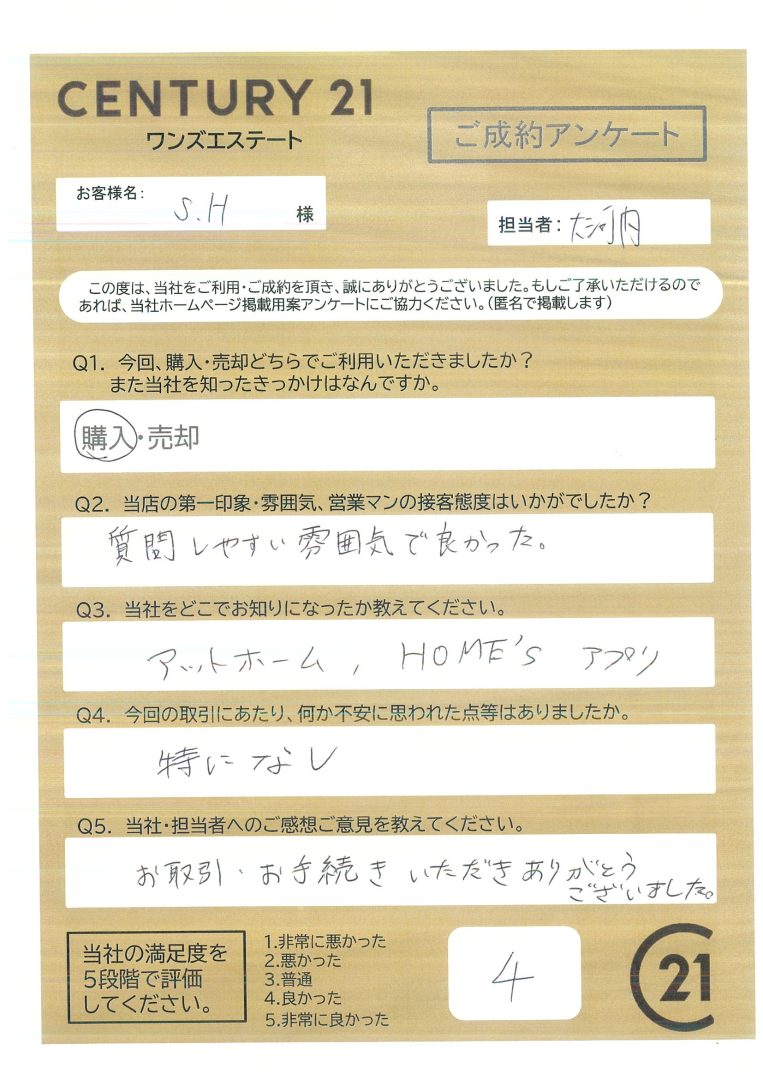 CENTURY 21
ワンズエステート
ご成約アンケート
お客様名:
S.H 様
担当者: 大河内
この度は、当社をご利用・ご成約を頂き、誠にありがとうございました。もしご了承いただけるので
あれば、当社ホームページ掲載用案アンケートにご協力ください。(匿名で掲載します)
Q1. 今回、購入・売却どちらでご利用いただきましたか?
また当社を知ったきっかけはなんですか。
購入・売却
Q2. 当店の第一印象・雰囲気、営業マンの接客態度はいかがでしたか?
質問しやすい雰囲気で良かった。
Q3. 当社をどこでお知りになったか教えてください。
アットホーム, HOME'S アプリ
Q4. 今回の取引にあたり、何か不安に思われた点等はありましたか。
特になし
Q5. 当社・担当者へのご感想ご意見を教えてください。
お取引・お手続きいただきありがとう
ございました。
当社の満足度を
5段階で評価
してください。
1.非常に悪かった
2.悪かった
3.普通
4.良かった
5.非常に良かった
4
21